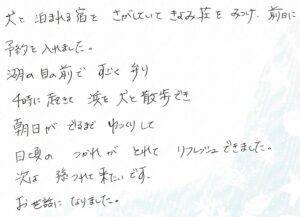 犬と泊まれる宿をさがしていてきよみ荘をみつけ、前日に
予約を入れました。
湖の目の前ですごく弁り
4時に起きて浜を犬と散歩でき
朝日がでるまでゆっくりして
日頃のつかれがとれてリフレッシュできました。
次は孫つれて来たいです。
お世話になりました。